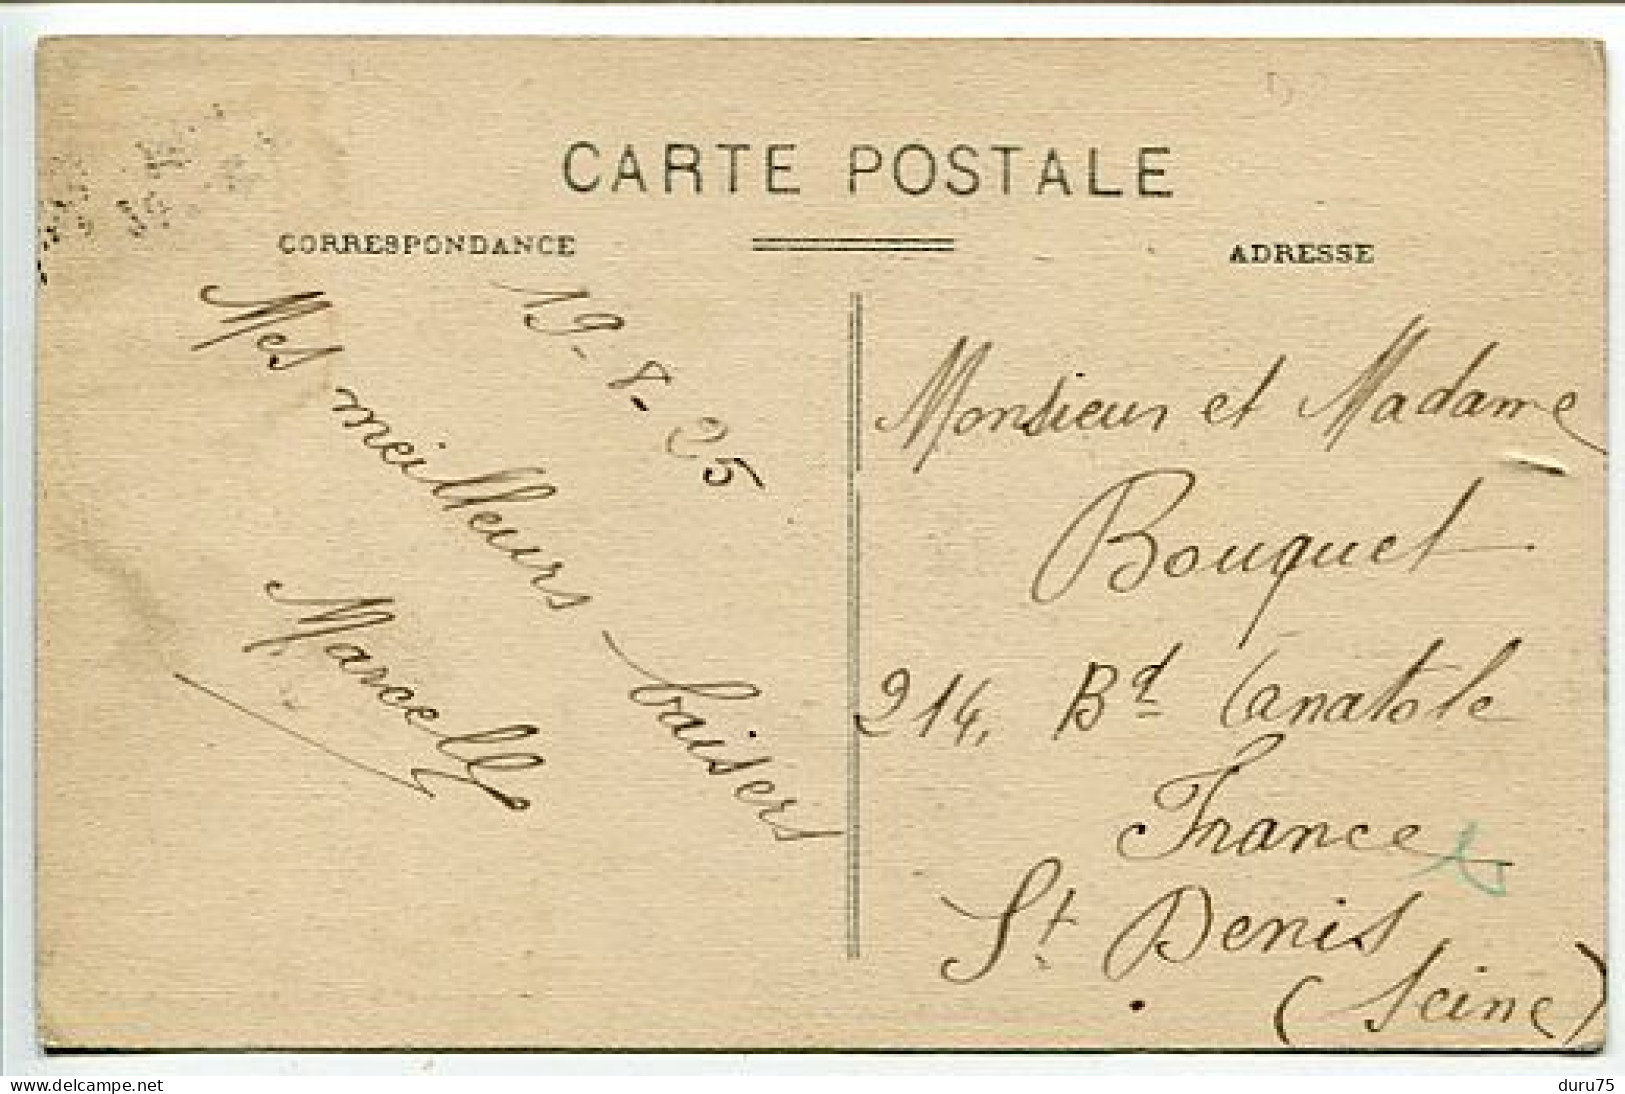 CARTE POSTALE
CORRESPONDANCE
ADRESSE
19-8-25
Mes meilleurs baisers
Marcelle
Monsieur et Madame
Bouquet
214, Bd Anatole
France
St. Denis
(Seine)
delcampe.net
duru75